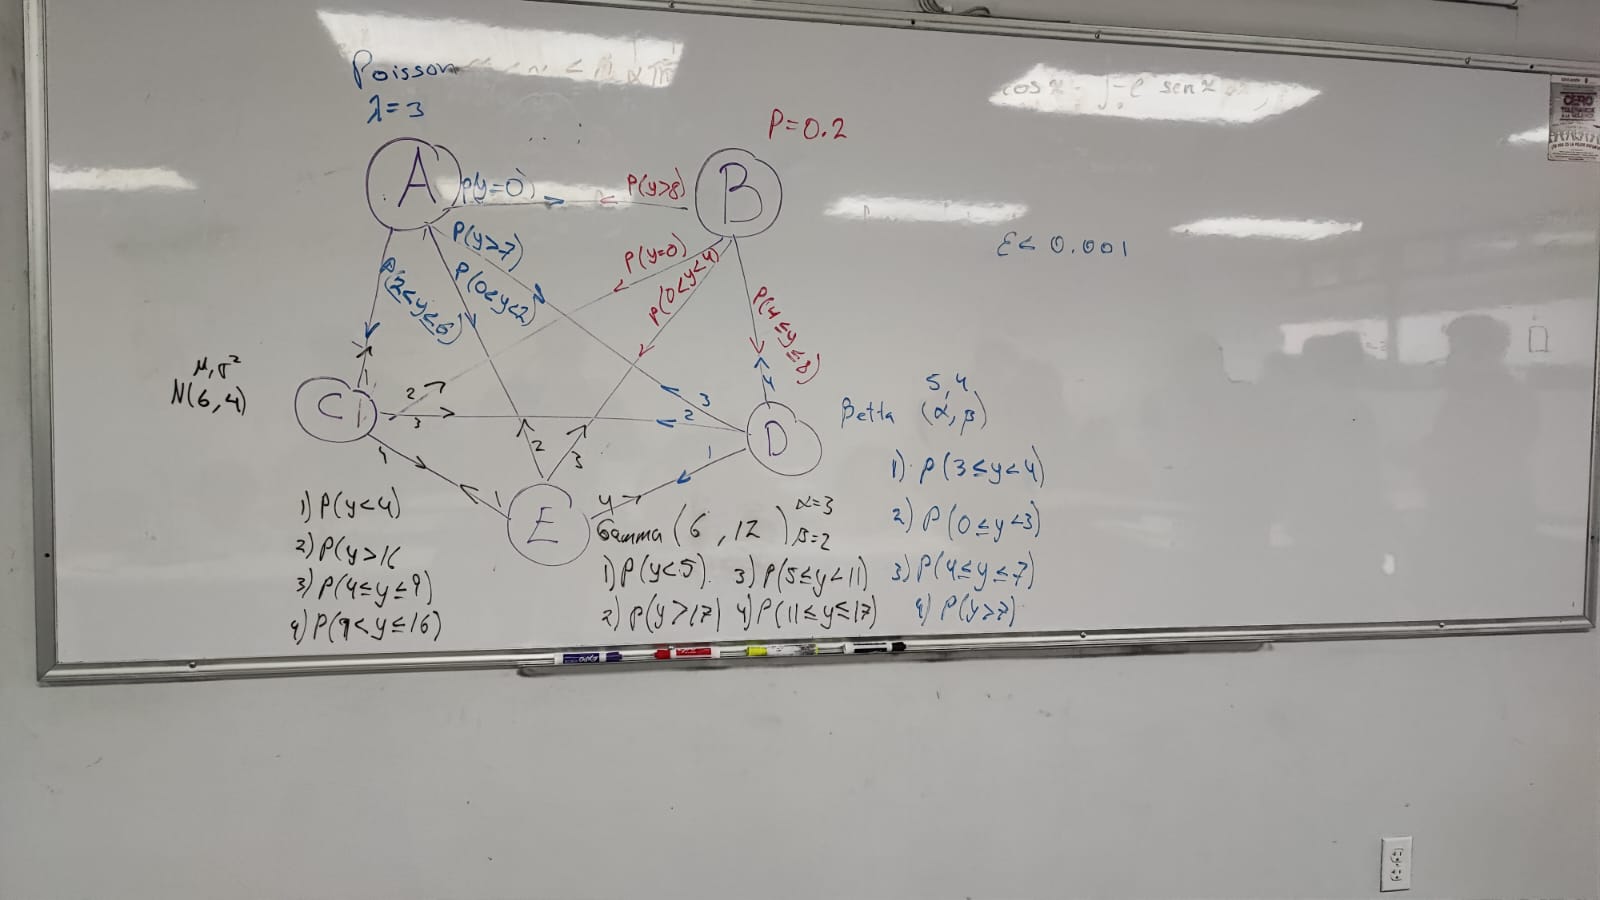 Poisson
λ=3
P=0.2
A
B
P(y=0)
P(y>8)
P(y>7)
P(0<y<2)
P(2≤y≤6)
P(y=0)
P(0<y<4)
P(4≤y≤8)
ε< 0.001
μ,σ²
N(6,4)
C
1
2
3
4
D
1
2
3
4
E
1
2
3
4
5,4
Betta (α,β)
1) P(3≤y<4)
2) P(0≤y<3)
3) P(4≤y≤7)
4) P(y>7)
1) P(y<4)
2) P(y>16
3) P(4≤y≤9)
4) P(9<y≤16)
Gamma (6,12)
α=3
β=2
1) P(y<5)
2) P(y>17)
3) P(5≤y<11)
4) P(11≤y≤17)
CERO
EXPO